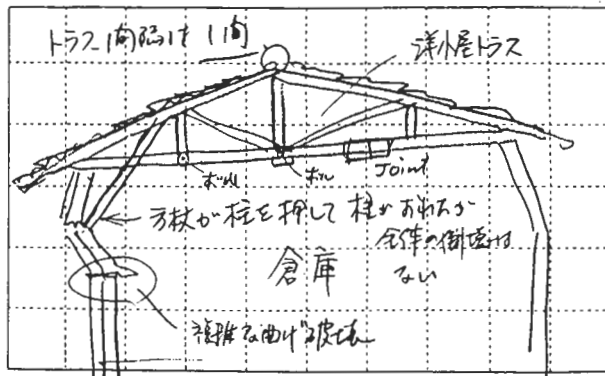 トラス間隔は1間
洋小屋トラス
ボルト
ボルト
Joint
方杖が柱を押して柱がおれたが
全体の倒壊は
ない
倉庫
複雑な曲げ破壊